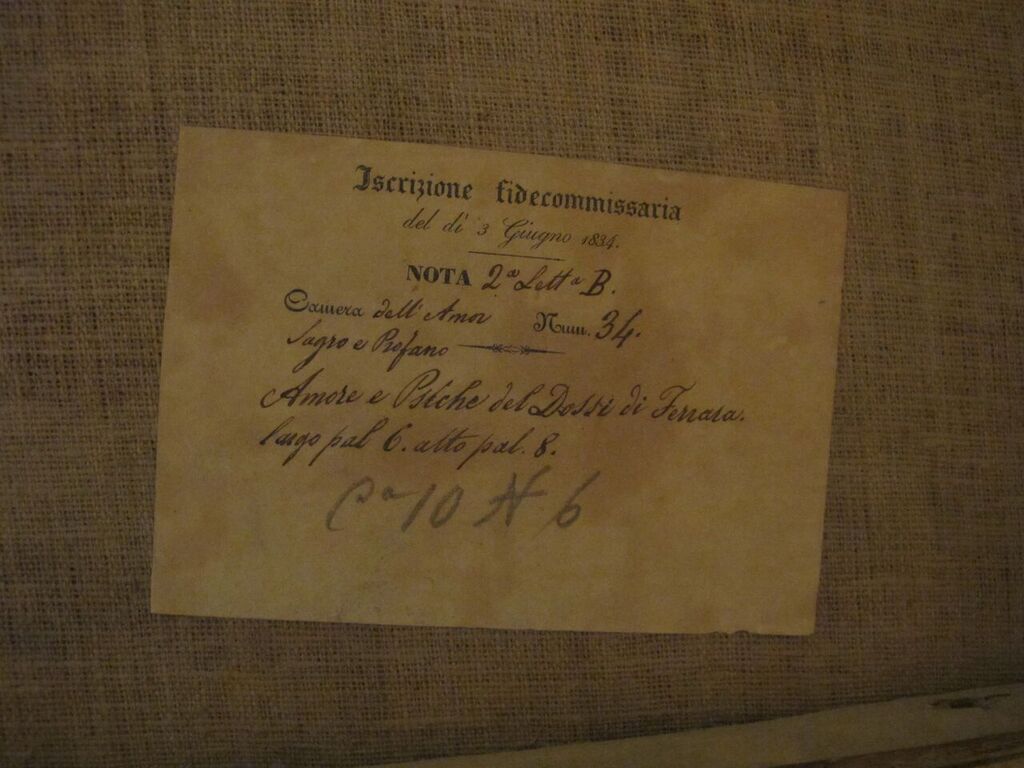 Iscrizione fidecommissaria
del dì 3 Giugno 1834.
NOTA 2ª Lettª B.
Camera dell'Amor Num. 34.
Sagro e Profano
Amore e Psiche del Dossi di Ferrara.
largo pal 6. alto pal. 8.
Cª 10 N 6